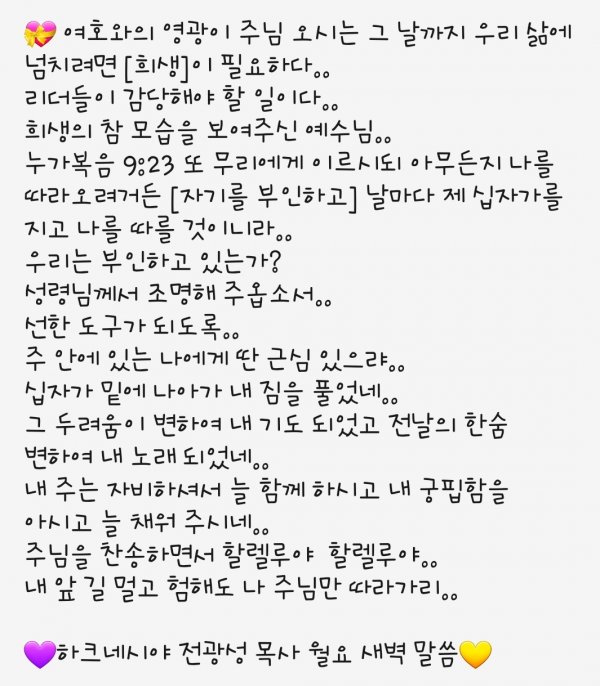 💝 여호와의 영광이 주님 오시는 그 날까지 우리 삶에
넘치려면 [희생]이 필요하다。。
리더들이 감당해야 할 일이다。。
희생의 참 모습을 보여주신 예수님。。
누가복음 9:23 또 무리에게 이르시되 아무든지 나를
따라오려거든 [자기를 부인하고] 날마다 제 십자가를
지고 나를 따를 것이니라。。
우리는 부인하고 있는가?
성령님께서 조명해 주옵소서。。
선한 도구가 되도록。。
주 안에 있는 나에게 딴 근심 있으랴。。
십자가 밑에 나아가 내 짐을 풀었네。。
그 두려움이 변하여 내 기도 되었고 전날의 한숨
변하여 내 노래 되었네。。
내 주는 자비하셔서 늘 함께 하시고 내 궁핍함을
아시고 늘 채워 주시네。。
주님을 찬송하면서 할렐루야 할렐루야。。
내 앞 길 멀고 험해도 나 주님만 따라가리。。
💜하크네시야 전광성 목사 월요 새벽 말씀💛